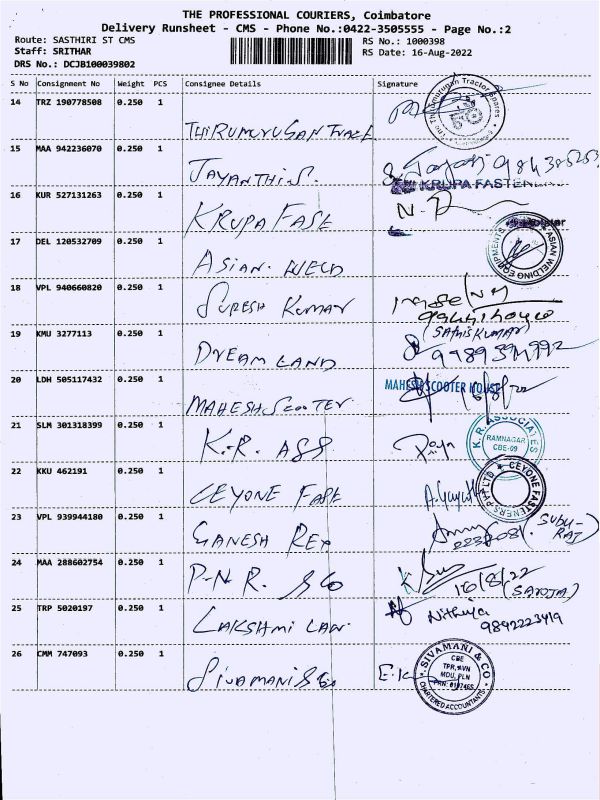 THE PROFESSIONAL COURIERS, Coimbatore
Delivery Runsheet - CMS - Phone No.:0422-3505555 - Page No.:2
Route: SASTHIRI ST CMS
RS No.: 1000398
Staff: SRITHAR
RS Date: 16-Aug-2022
DRS No.: DCJB100039802
S No Consignment No Weight PCS Consignee Details Signature
14 TRZ 190778508 0.250 1
THIRUMURUGAN TRACT
15 MAA 942236070 0.250 1
JAYANTHI.S.
KRUPA FASTEN
16 KUR 527131263 0.250 1
KRUPA FASE
17 DEL 120532709 0.250 1
ASIAN WELDING EQUIPMENTS
ASIAN. WELD
18 VPL 940660820 0.250 1
SURESH KUMAR
19 KMU 3277113 0.250 1
(SATHISKUMAR)
DREAM LAND
20 LDH 505117432 0.250 1
MAHESH SCOOTER HOUSE
16/8/22
MAHESH SCOOTER
21 SLM 301318399 0.250 1
K. R. ASSOCIATES
RAMNAGAR
CBE-09
K.R. ASS
22 KKU 462191 0.250 1
CEYONE FASTENERS PVT LTD
CEYONE FASE
23 VPL 939944180 0.250 1
(SUBU-
RAJ
GANESH REY
24 MAA 288602754 0.250 1
16/8/22
(SAROJA)
P.N.R. &co
25 TRP 5020197 0.250 1
Nithiya
9892223419
LAKSHMI LAW
26 CMM 747093 0.250 1
SIVAMANI & CO
CBE
TPR, SVN
MDU, PLN
CHARTERED ACCOUNTANTS
E.K
SIVAMANI & Co